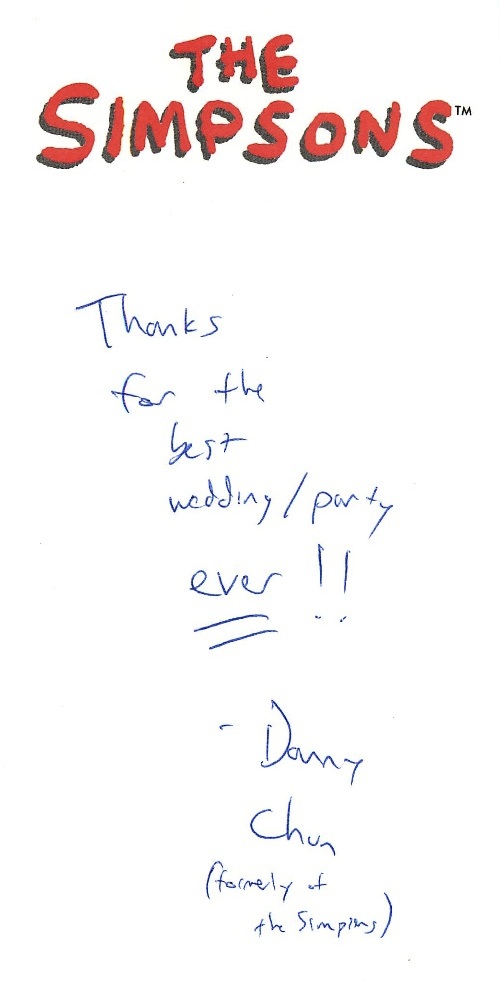 THE
SIMPSONS™
Thanks
for the
best
wedding/party
ever!!
- Danny
Chun
(formerly of
the Simpsons)